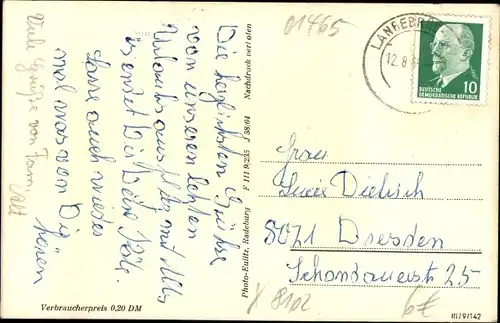 Die herzlichsten Grüße
von unseren letzten
Urlaubsausflug mit Utta
sendet Dir Deine Käte.
Lasse auch wieder
mal was von Dir
hören
Viele Grüße von Fam.
01465
LANGEBRÜ
12.8.6
10
DEUTSCHE
DEMOKRATISCHE REPUBLIK
Frau
Lucie Dietrich
8021 Dresden
Schandauerstr. 25
X 8102
6€
Photo-Eulitz, Radeburg F 111 9/235 J 38/64 Nachdruck verboten
Verbraucherpreis 0,20 DM
III/9/142